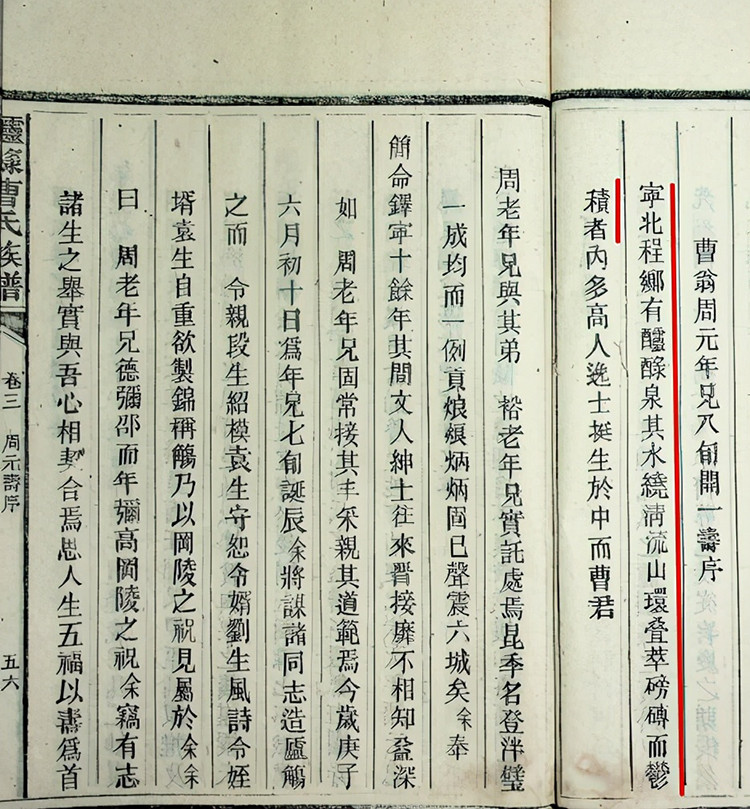 曹翁周元年兄八旬開一壽序
寧北程鄉有醽醁泉其水繞清流山環叠萃磅礡而鬱
積者內多高人逸士挺生於中而曹君
周老年兄與其弟 裕老年兄實託處焉昆季名登泮璧
一成均而一例貢娘娘炳炳固已聲震六城矣余奉
簡命鐸寧十餘年其間文人紳士往來晋接靡不相知益深
如 周老年兄固常接其丰采親其道範焉今歲庚子
六月初十日爲年兄七旬誕辰余將謀諸同志造廬觴
之而 令親段生紹模袁生守恕令婿劉生風詩令姪
壻袁生自重欲製錦稱觴乃以岡陵之祝見屬於余余
曰 周老年兄德彌邵而年彌高岡陵之祝余竊有志
諸生之舉實與吾心相契合焉思人生五福以壽爲首
曹氏族譜
卷三 周元壽序
五六